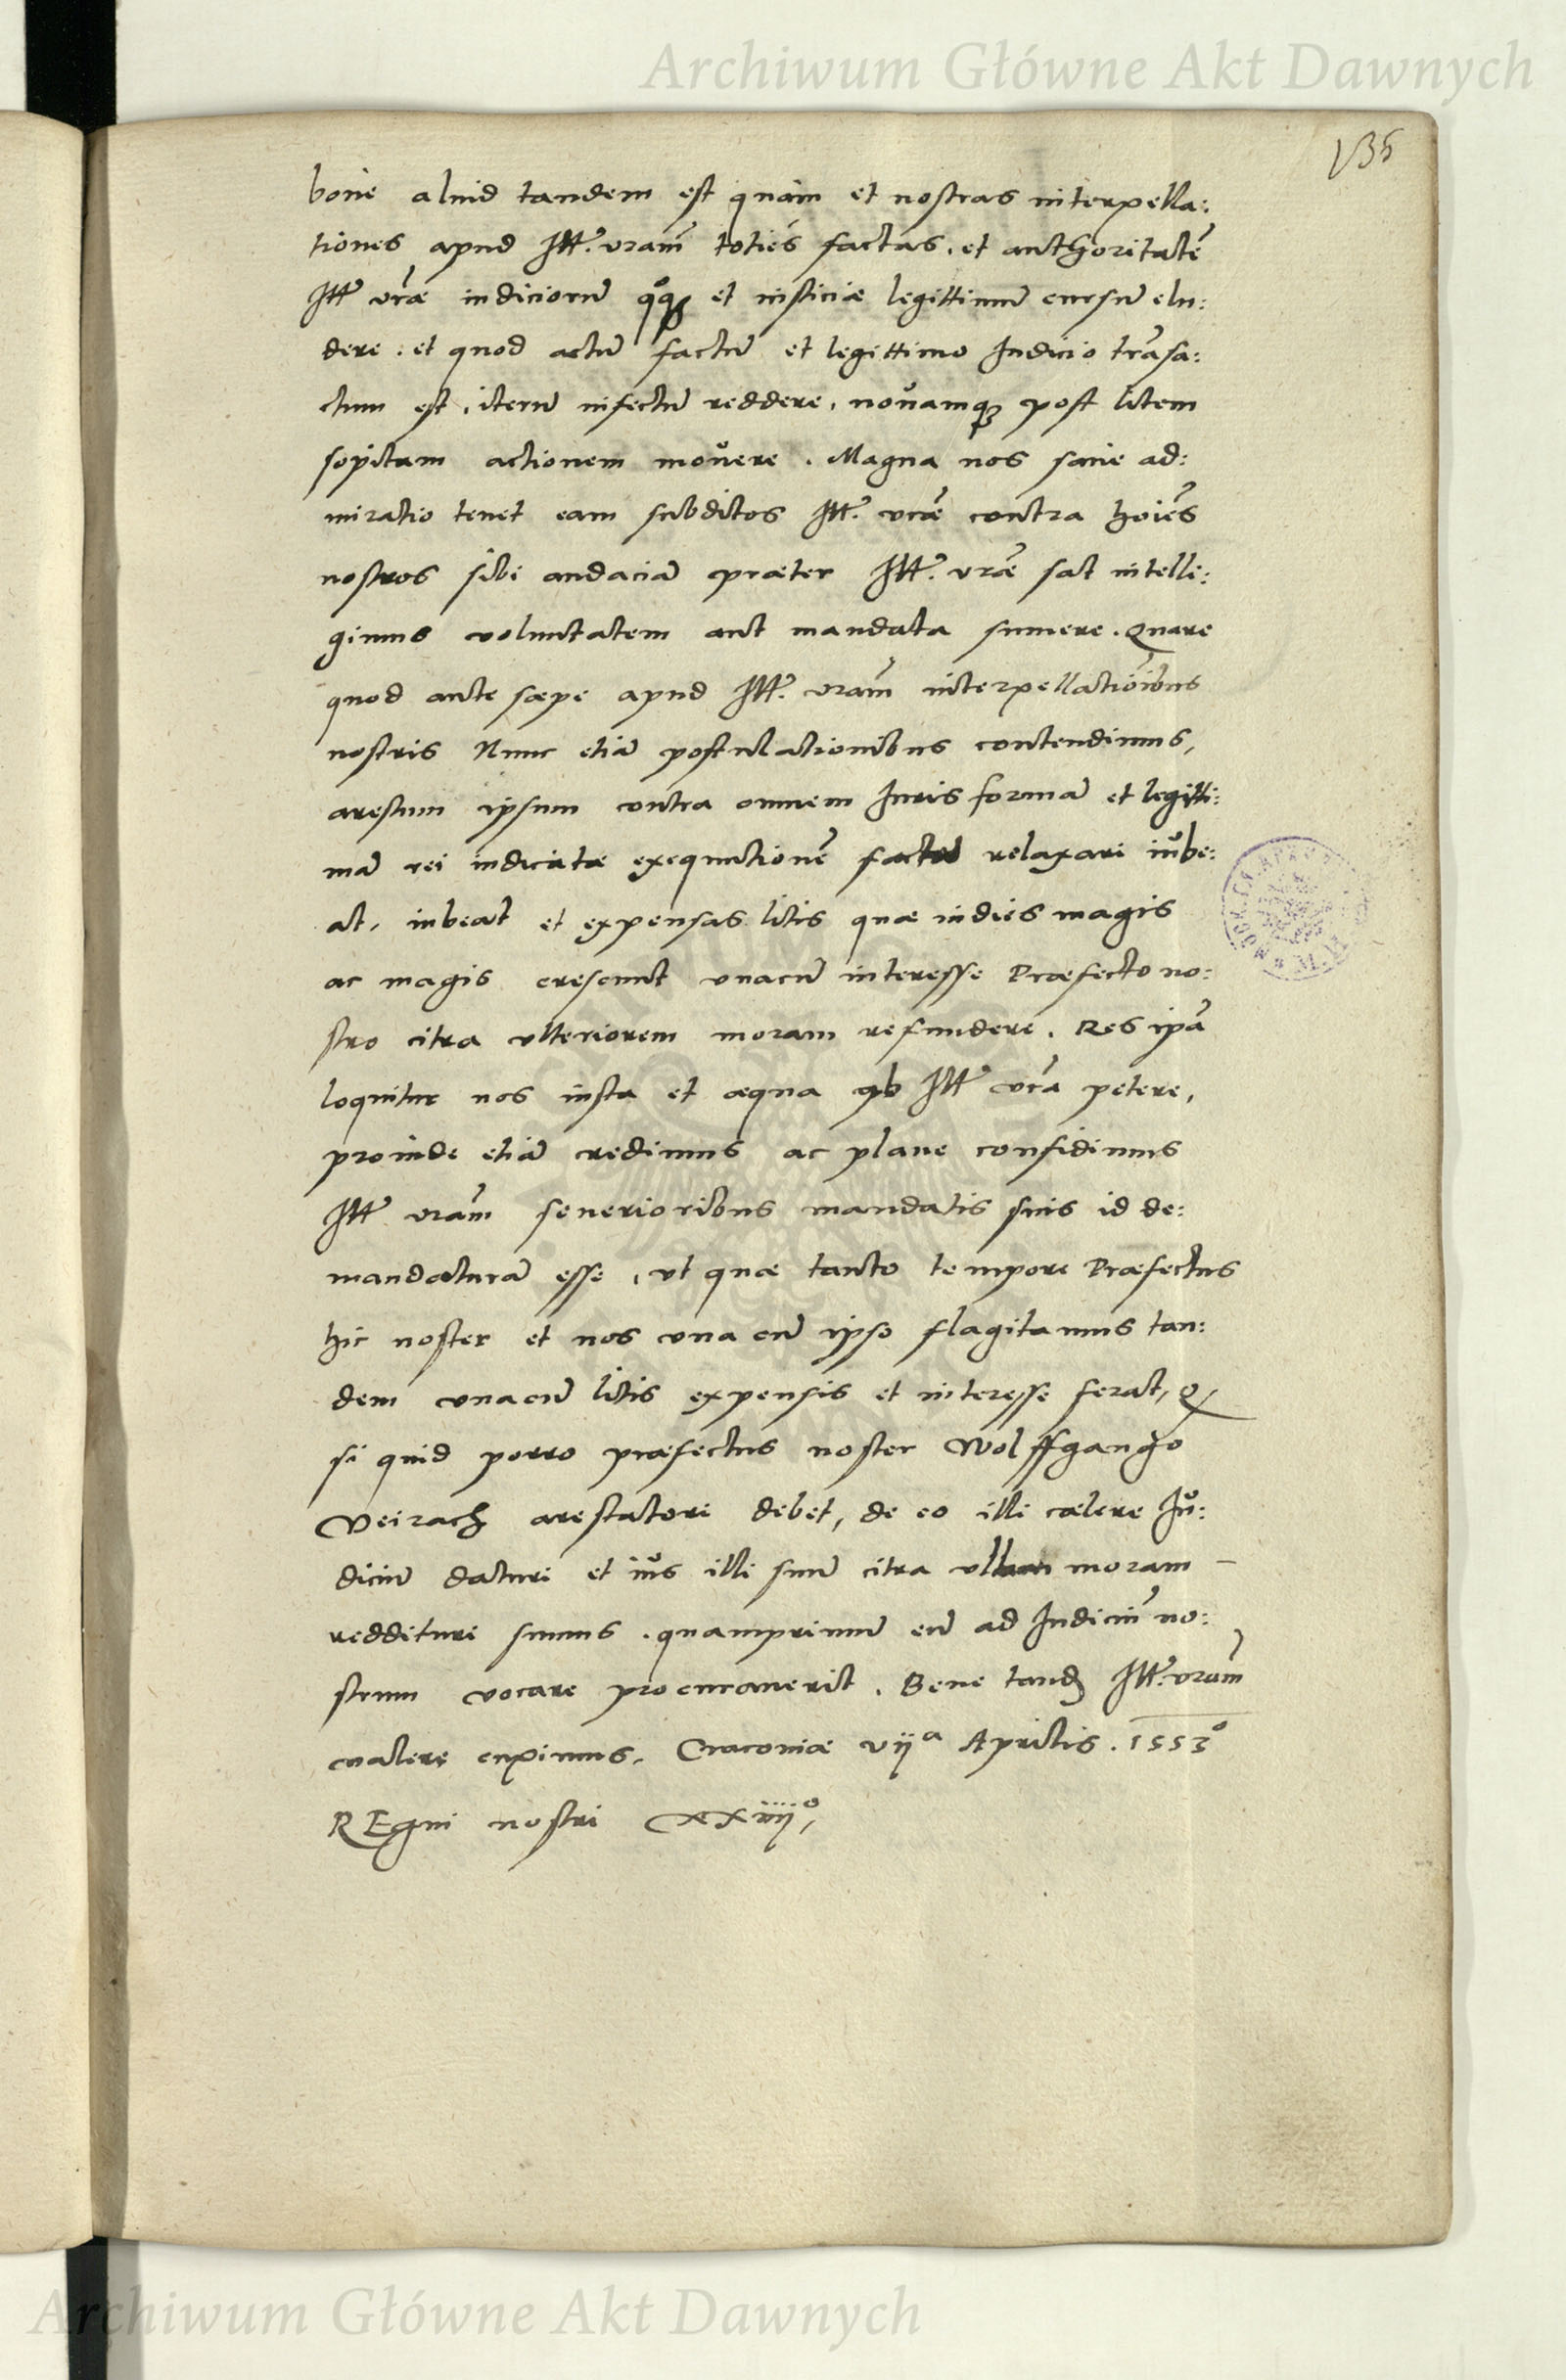 Archiwum Główne Akt Dawnych
135
bone aliud tandem est quàm et nostras interpella:
tiones apud Ill. vrãm toties factas. et authoritatẽ
Ill vrãe iudiciorũ et iusticiæ legittimũ cursũ elu:
dere. et quod actũ factũ et legittimo Iudicio trãsa:
ctum est, iterũ infectũ reddere, nouamq; post litem
sopitam actionem mouere. Magna nos sane ad:
miratio tenet eam subditos Ill. vrãe contra hoiẽs
nostros sibi audaciã præter Ill. vrãe sat intelli:
gimus voluntatem aut mandata sumere. Quare
quod ante sæpe apud Ill. vrãm interpellationibus
nostris Nunc etiã postulationibus contendimus,
arestum ipsum contra omnem Iuris formã et legitti:
mã rei iudicatæ exequutionẽ relaxari iube:
at, iubeat et expensas litis quæ indies magis
ac magis crescunt vnacũ interesse Præfecto no:
stro citra vlteriorem moram refundere. Res ipã
loquitur nos iusta et æqua ab Ill vrã petere,
proinde etiã credimus ac plane confidimus
Ill vrãm seuerioribus mandatis suis id de:
mandaturã esse, vt quæ tanto tempore Præfectus
hic noster et nos vna cũ ipso flagitamus tan:
dem vnacũ litis expensis et interesse ferat,
si quid porro præfectus noster Wolffgango
Veirach arestatori debet, de eo illi celere Iu:
diciũ daturi et ius illi suũ citra vllam moram
reddituri sumus. quamprimũ eũ ad Iudiciũ no:
strum vocare procurauerit. Bene tandẽ Ill. vrãm
valere cupimus. Cracoviæ vij a Aprilis. 1553º
REgni nostri
Archiwum Główne Akt Dawnych